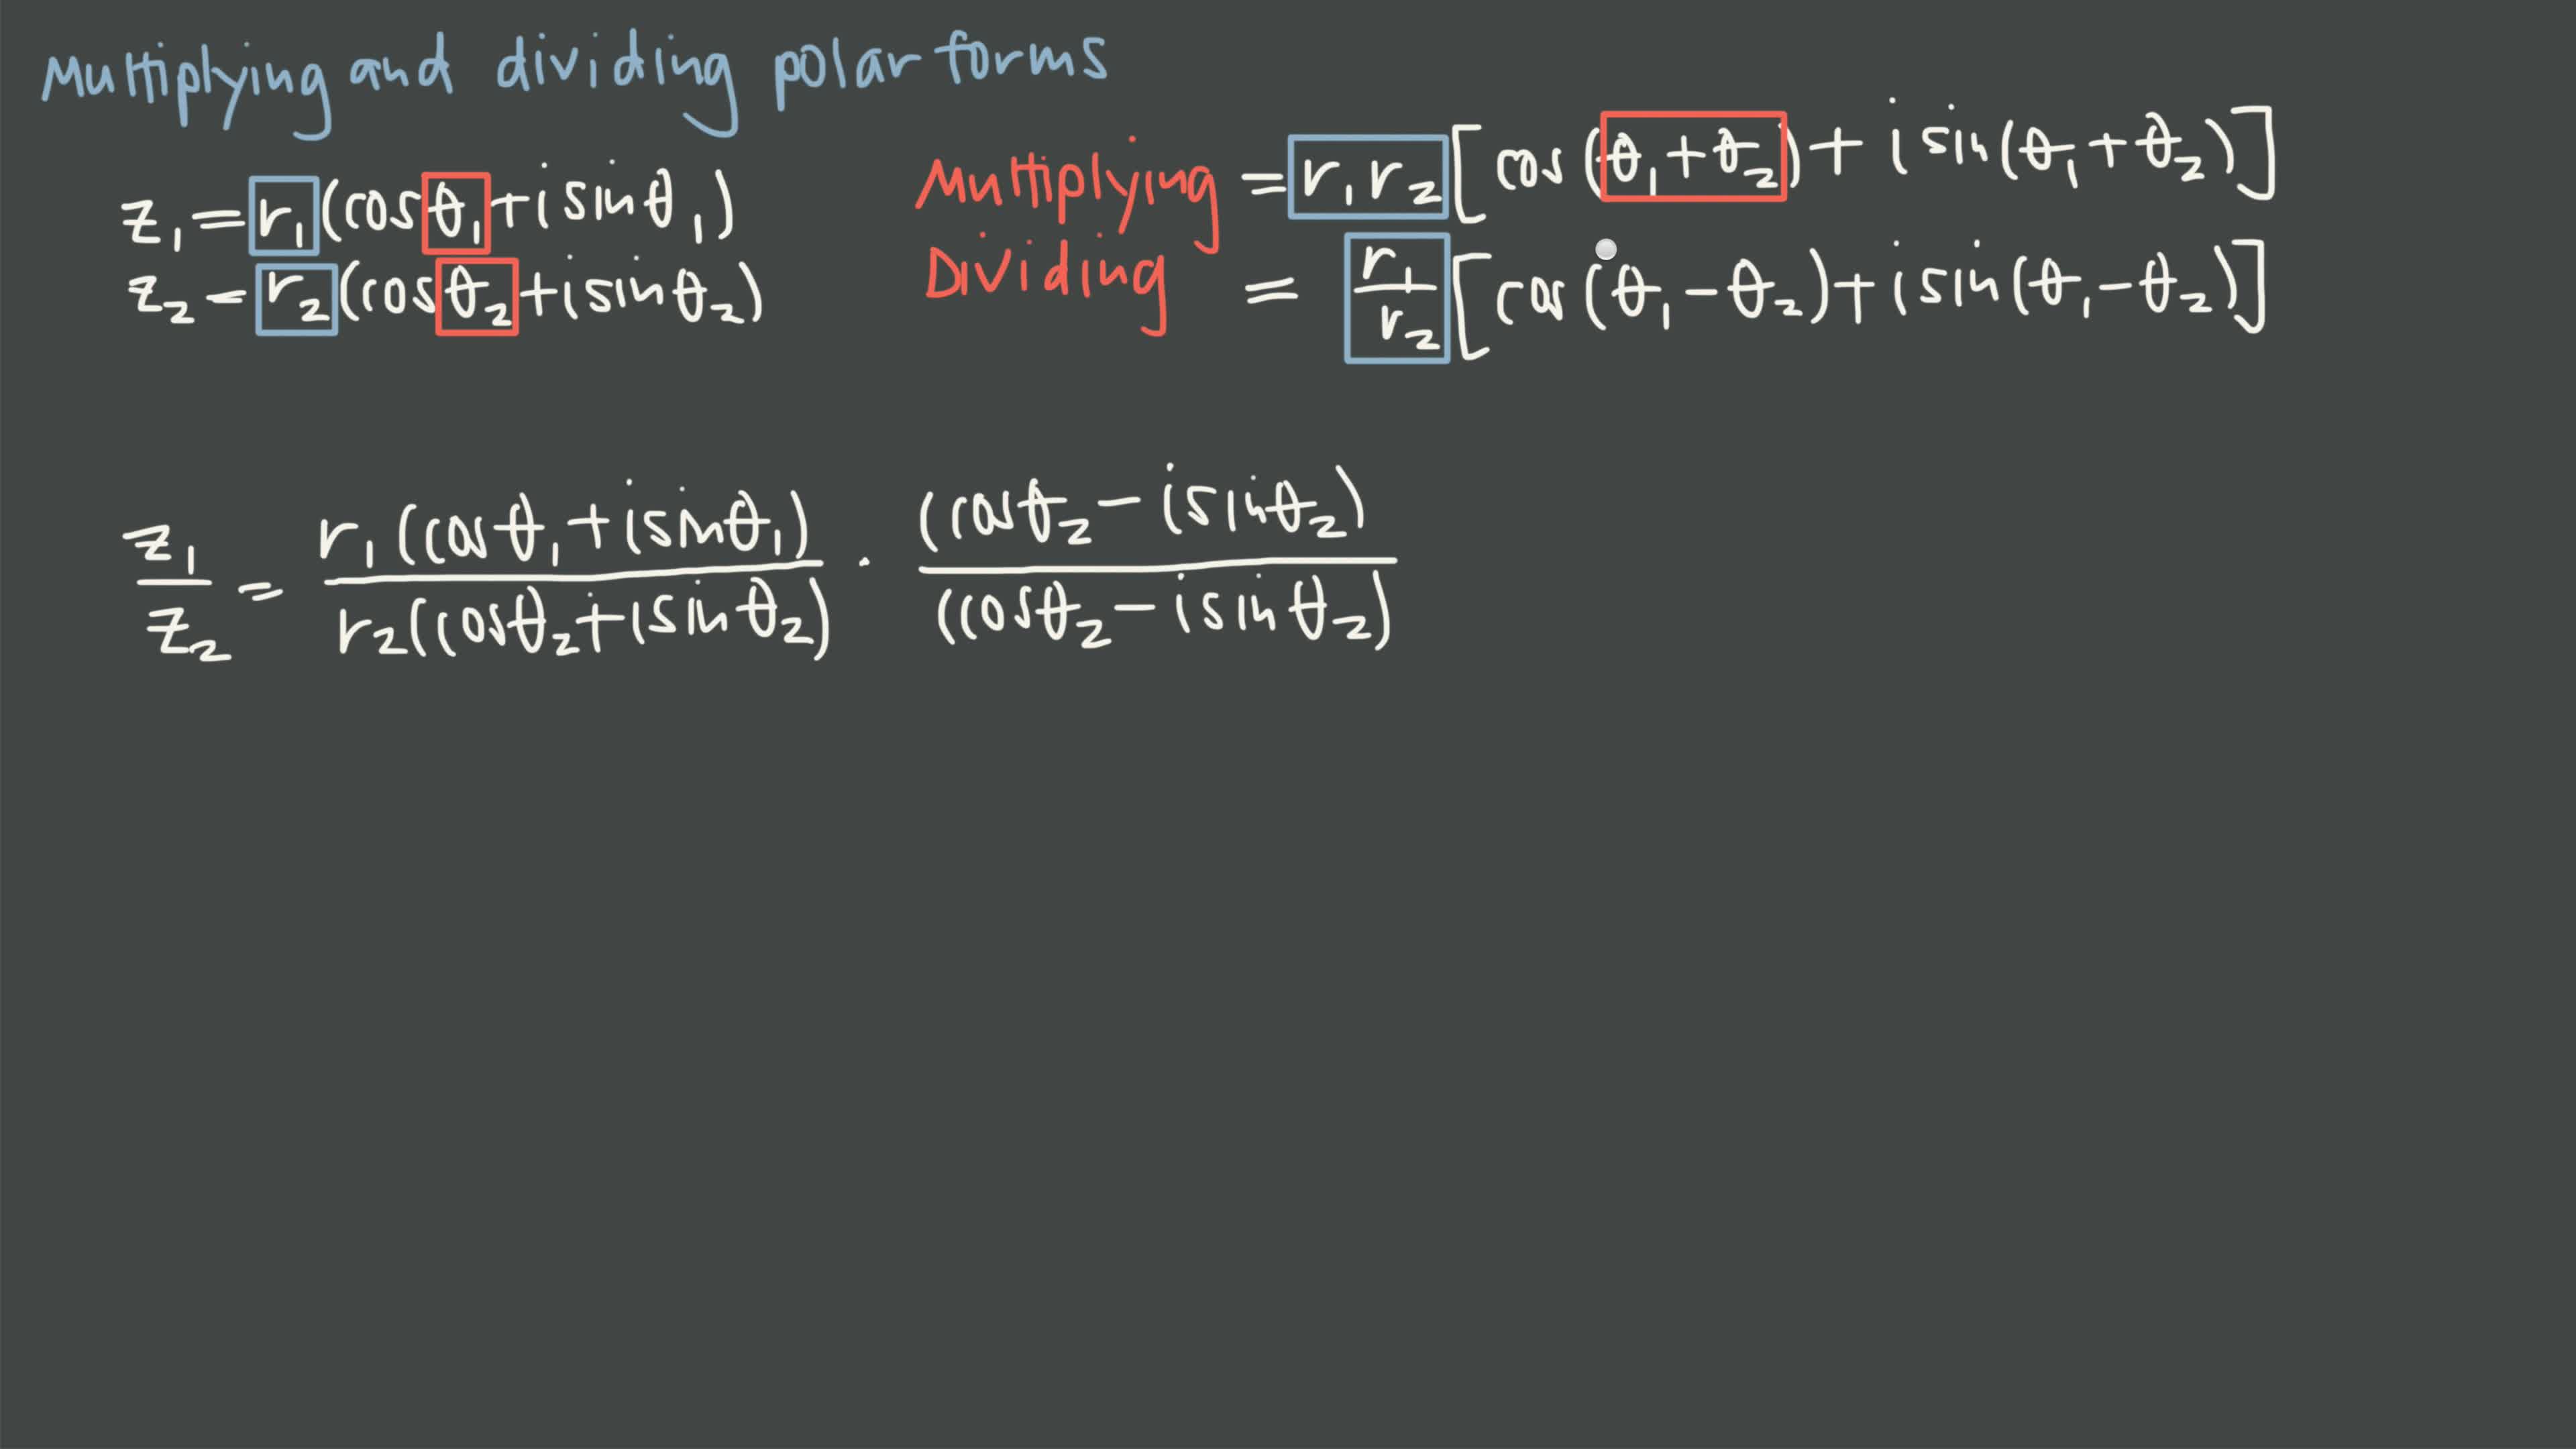 Multiplying and dividing polar forms
z₁ = r₁(cosθ₁ + i sinθ₁)
z₂ = r₂(cosθ₂ + i sinθ₂)
Multiplying = r₁r₂[cos(θ₁ + θ₂) + i sin(θ₁ + θ₂)]
Dividing = r₁/r₂[cos(θ₁ - θ₂) + i sin(θ₁ - θ₂)]
z₁/z₂ = r₁(cosθ₁ + i sinθ₁)/r₂(cosθ₂ + i sinθ₂) · (cosθ₂ - i sinθ₂)/(cosθ₂ - i sinθ₂)